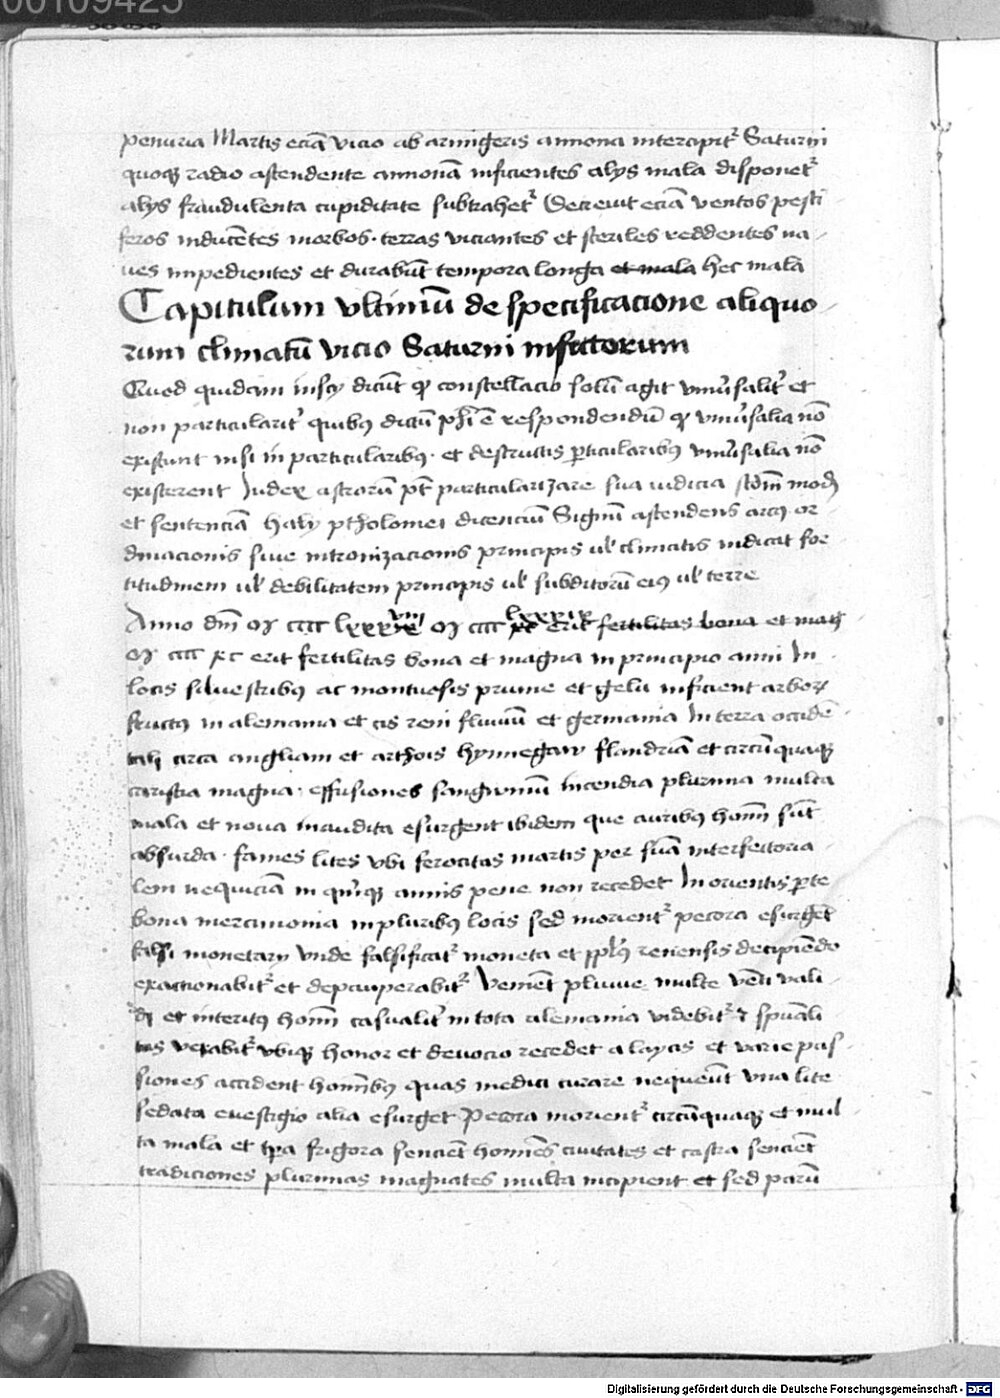 00109425
penuria Martis eciā vicio ab armigeris annona intercipit᷑ Saturni
quoqꝫ radio astendente annonā inficientes alijs mala disponet᷑
alijs fraudulenta cupiditate subtrahet᷑ Decreuit eciā ventos pesti
feros inducētes morbos · terras viciantes et steriles reddentes na
ues impedientes et durabūt tempora longa et mala hec mala
Capitulum vltimū de specificacione aliquo
rum climatū vicio Saturni infectorum
Quod quidam inscij dicūt ꝙ constellacio solū agit vniūsalit᷑ et
non particularit᷑ quibꝰ dictū ph̄i ē respondendū ꝙ vniūsalia nō
existunt nisi in particularibꝰ · et destructis ꝑticularibꝰ vniūsalia nō
existerent Iudex astrorū pt̄ particularizare sua iudicia scdm̄ modū
et sentenciā Haly ptholomei dicenciū Signū astendens or
dinacionis siue intronizacionis principis ul̓ climatis indicat for
titudinem ul̓ debilitatem principis ul̓ subditorū eiꝰ ul̓ terre
Anno dm̄ M cccc lxxxviii M cccc lxxxix erit fertilitas bona et mag
M cccc xc erit fertilitas bona et magna in principio anni In
locis siluestribꝰ ac montuosis pruine et gelu inficient arborꝝ
fructꝰ in alemania et cis reni fluuiū et germania In terra occidē
tali circa angliam et arthois hynnegaw flandriā et circūquaqꝫ
caristia magna · effusiones sangwinū incendia plurima multa
mala et noua inaudita esurgent ibidem que auribꝰ hoīm sūt
absurda · fames lites vbi ferocitas martis per suā interfectoria
lem nequiciā in qn̄qꝫ annis pene non recedet In orientis ꝑte
bona mercimonia in pluribꝰ locis sed morient᷑ pecora esurget
falsi monetarij vnde falsificat᷑ moneta et pplūs renensis decipiendo
exactionabit᷑ et depauperabit᷑ Venient pluuie multe vēti vali
di et interitꝰ hoīm casualit᷑ in tota alemania videbit᷑ spūali
tas vexabit᷑ vbiqꝫ honor et deuocio recedet a laycis et varie pas
siones accident hoībꝰ quas medici curare nequeūt vna lite
sedata euestigio alia esurget Pecora morient᷑ circūquaqꝫ et mul
ta mala et tpa frigora sencient homīes ciuitates et castra sencient
tradiciones plurimas magnates multa incipient et sed parū
Digitalisierung gefördert durch die Deutsche Forschungsgemeinschaft - DFG